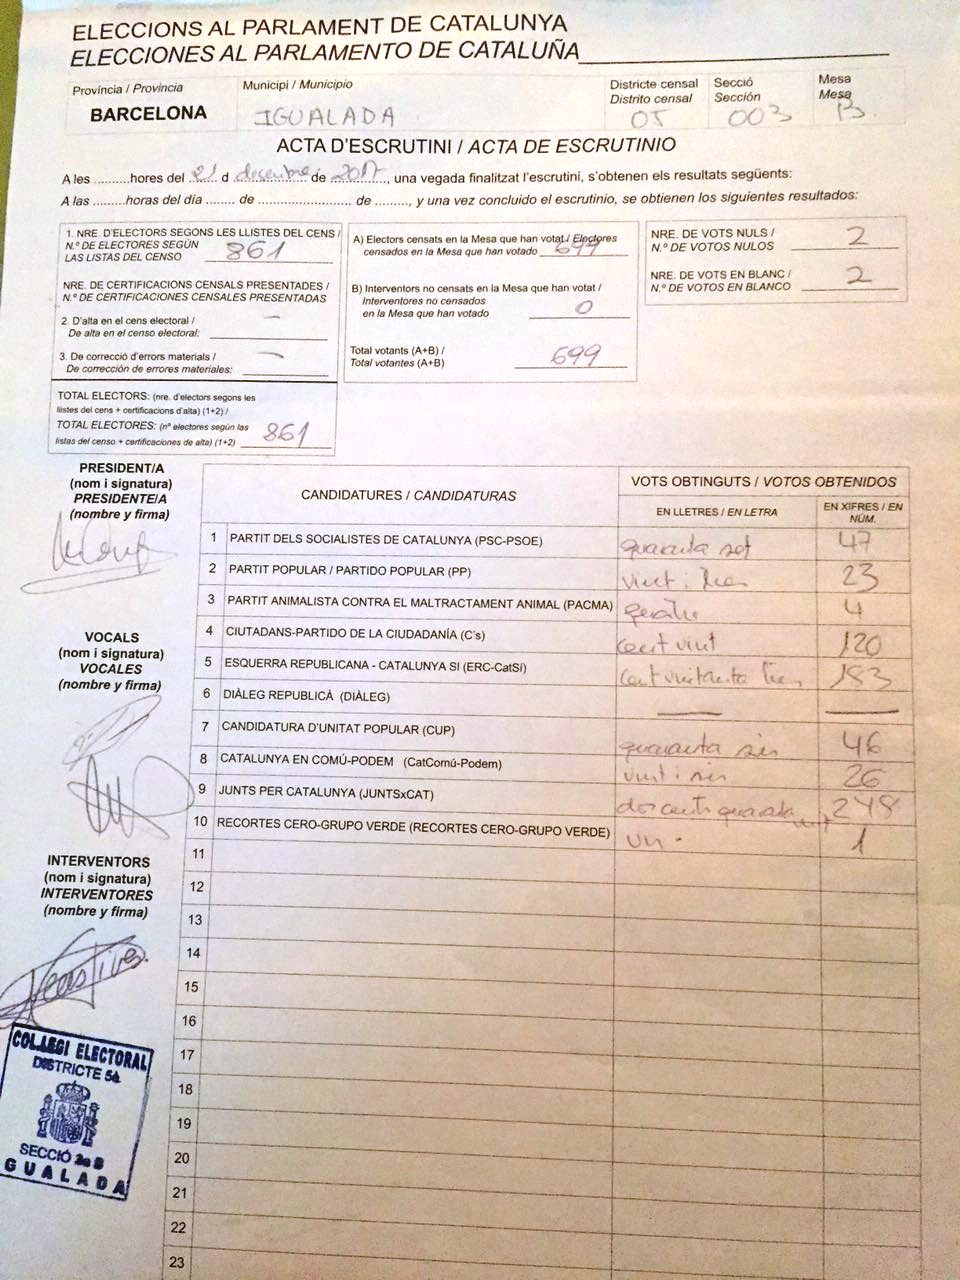 ELECCIONS AL PARLAMENT DE CATALUNYA
ELECCIONES AL PARLAMENTO DE CATALUÑA
Província / Provincia
BARCELONA
Municipi / Municipio
IGUALADA
Districte censal
Distrito censal
05
Secció
Sección
003
Mesa
Mesa
B
ACTA D'ESCRUTINI / ACTA DE ESCRUTINIO
A les ..........hores del 21 d decembre de 2017, una vegada finalitzat l'escrutini, s'obtenen els resultats següents:
A las ..........horas del día ........ de ......................... de ........, y una vez concluido el escrutinio, se obtienen los siguientes resultados:
1. NRE. D'ELECTORS SEGONS LES LLISTES DEL CENS /
N.º DE ELECTORES SEGÚN
LAS LISTAS DEL CENSO 861
NRE. DE CERTIFICACIONS CENSALS PRESENTADES /
N.º DE CERTIFICACIONES CENSALES PRESENTADAS
2. D'alta en el cens electoral /
De alta en el censo electoral: —
3. De correcció d'errors materials /
De corrección de errores materiales: —
TOTAL ELECTORS: (nre. d'electors segons les
llistes del cens + certificacions d'alta) (1+2) /
TOTAL ELECTORES: (nº electores según las
listas del censo + certificaciones de alta) (1+2) 861
A) Electors censats en la Mesa que han votat / Electores
censados en la Mesa que han votado 699
B) Interventors no censats en la Mesa que han votat /
Interventores no censados
en la Mesa que han votado 0
Total votants (A+B) /
Total votantes (A+B) 699
NRE. DE VOTS NULS /
N.º DE VOTOS NULOS 2
NRE. DE VOTS EN BLANC /
N.º DE VOTOS EN BLANCO 2
PRESIDENT/A
(nom i signatura)
PRESIDENTE/A
(nombre y firma)
VOCALS
(nom i signatura)
VOCALES
(nombre y firma)
INTERVENTORS
(nom i signatura)
INTERVENTORES
(nombre y firma)
COL.LEGI ELECTORAL
DISTRICTE 5è
SECCIÓ 3a B
IGUALADA
CANDIDATURES / CANDIDATURAS
VOTS OBTINGUTS / VOTOS OBTENIDOS
EN LLETRES / EN LETRA
EN XIFRES / EN NÚM.
1 PARTIT DELS SOCIALISTES DE CATALUNYA (PSC-PSOE) quaranta set 47
2 PARTIT POPULAR / PARTIDO POPULAR (PP) vint i tres 23
3 PARTIT ANIMALISTA CONTRA EL MALTRACTAMENT ANIMAL (PACMA) quatre 4
4 CIUTADANS-PARTIDO DE LA CIUDADANÍA (C's) cent vint 120
5 ESQUERRA REPUBLICANA - CATALUNYA SI (ERC-CatSí) cent vuitanta tres 183
6 DIÀLEG REPUBLICÀ (DIÀLEG) — —
7 CANDIDATURA D'UNITAT POPULAR (CUP) quaranta sis 46
8 CATALUNYA EN COMÚ-PODEM (CatComú-Podem) vint i sis 26
9 JUNTS PER CATALUNYA (JUNTSxCAT) dos cents quaranta vuit 248
10 RECORTES CERO-GRUPO VERDE (RECORTES CERO-GRUPO VERDE) un 1
11
12
13
14
15
16
17
18
19
20
21
22
23